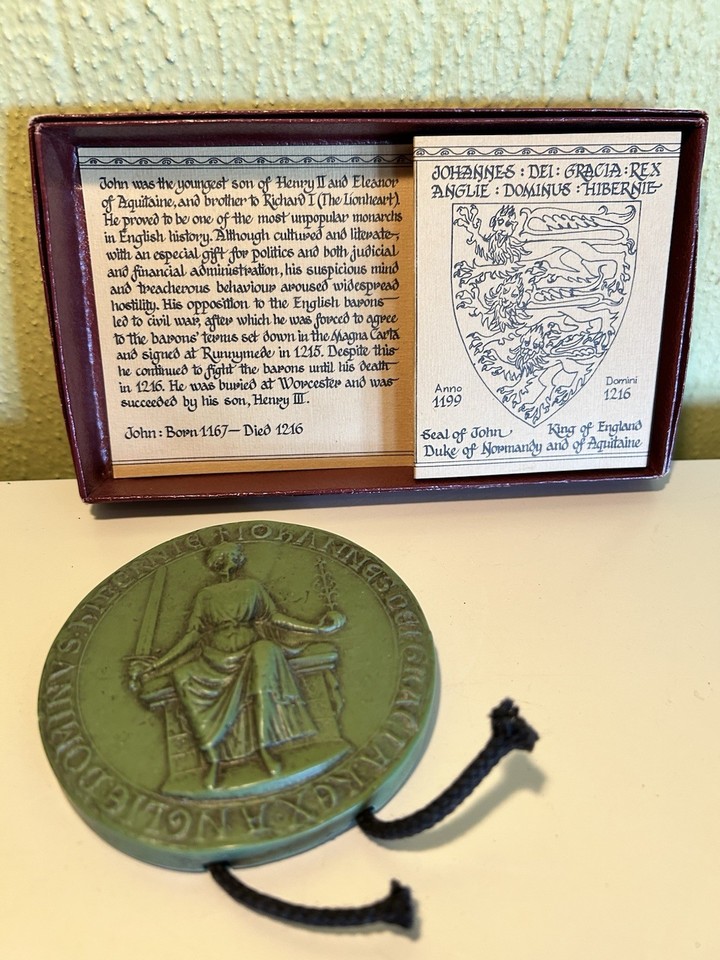 John was the youngest son of Henry II and Eleanor
of Aquitaine, and brother to Richard I (The Lionheart).
He proved to be one of the most unpopular monarchs
in English history. Although cultured and literate,
with an especial gift for politics and both judicial
and financial administration, his suspicious mind
and treacherous behaviour aroused widespread
hostility. His opposition to the English barons
led to civil war, after which he was forced to agree
to the barons' terms set down in the Magna Carta
and signed at Runnymede in 1215. Despite this
he continued to fight the barons until his death
in 1216. He was buried at Worcester and was
succeeded by his son, Henry III.
John: Born 1167 — Died 1216
JOHANNES : DEI : GRACIA : REX
ANGLIE : DOMINUS : HIBERNIE
Anno
1199
Domini
1216
Seal of John King of England
Duke of Normandy and of Aquitaine
IOHANNES DEI GRACIA REX ANGLIE DOMINVS HIBERNIE